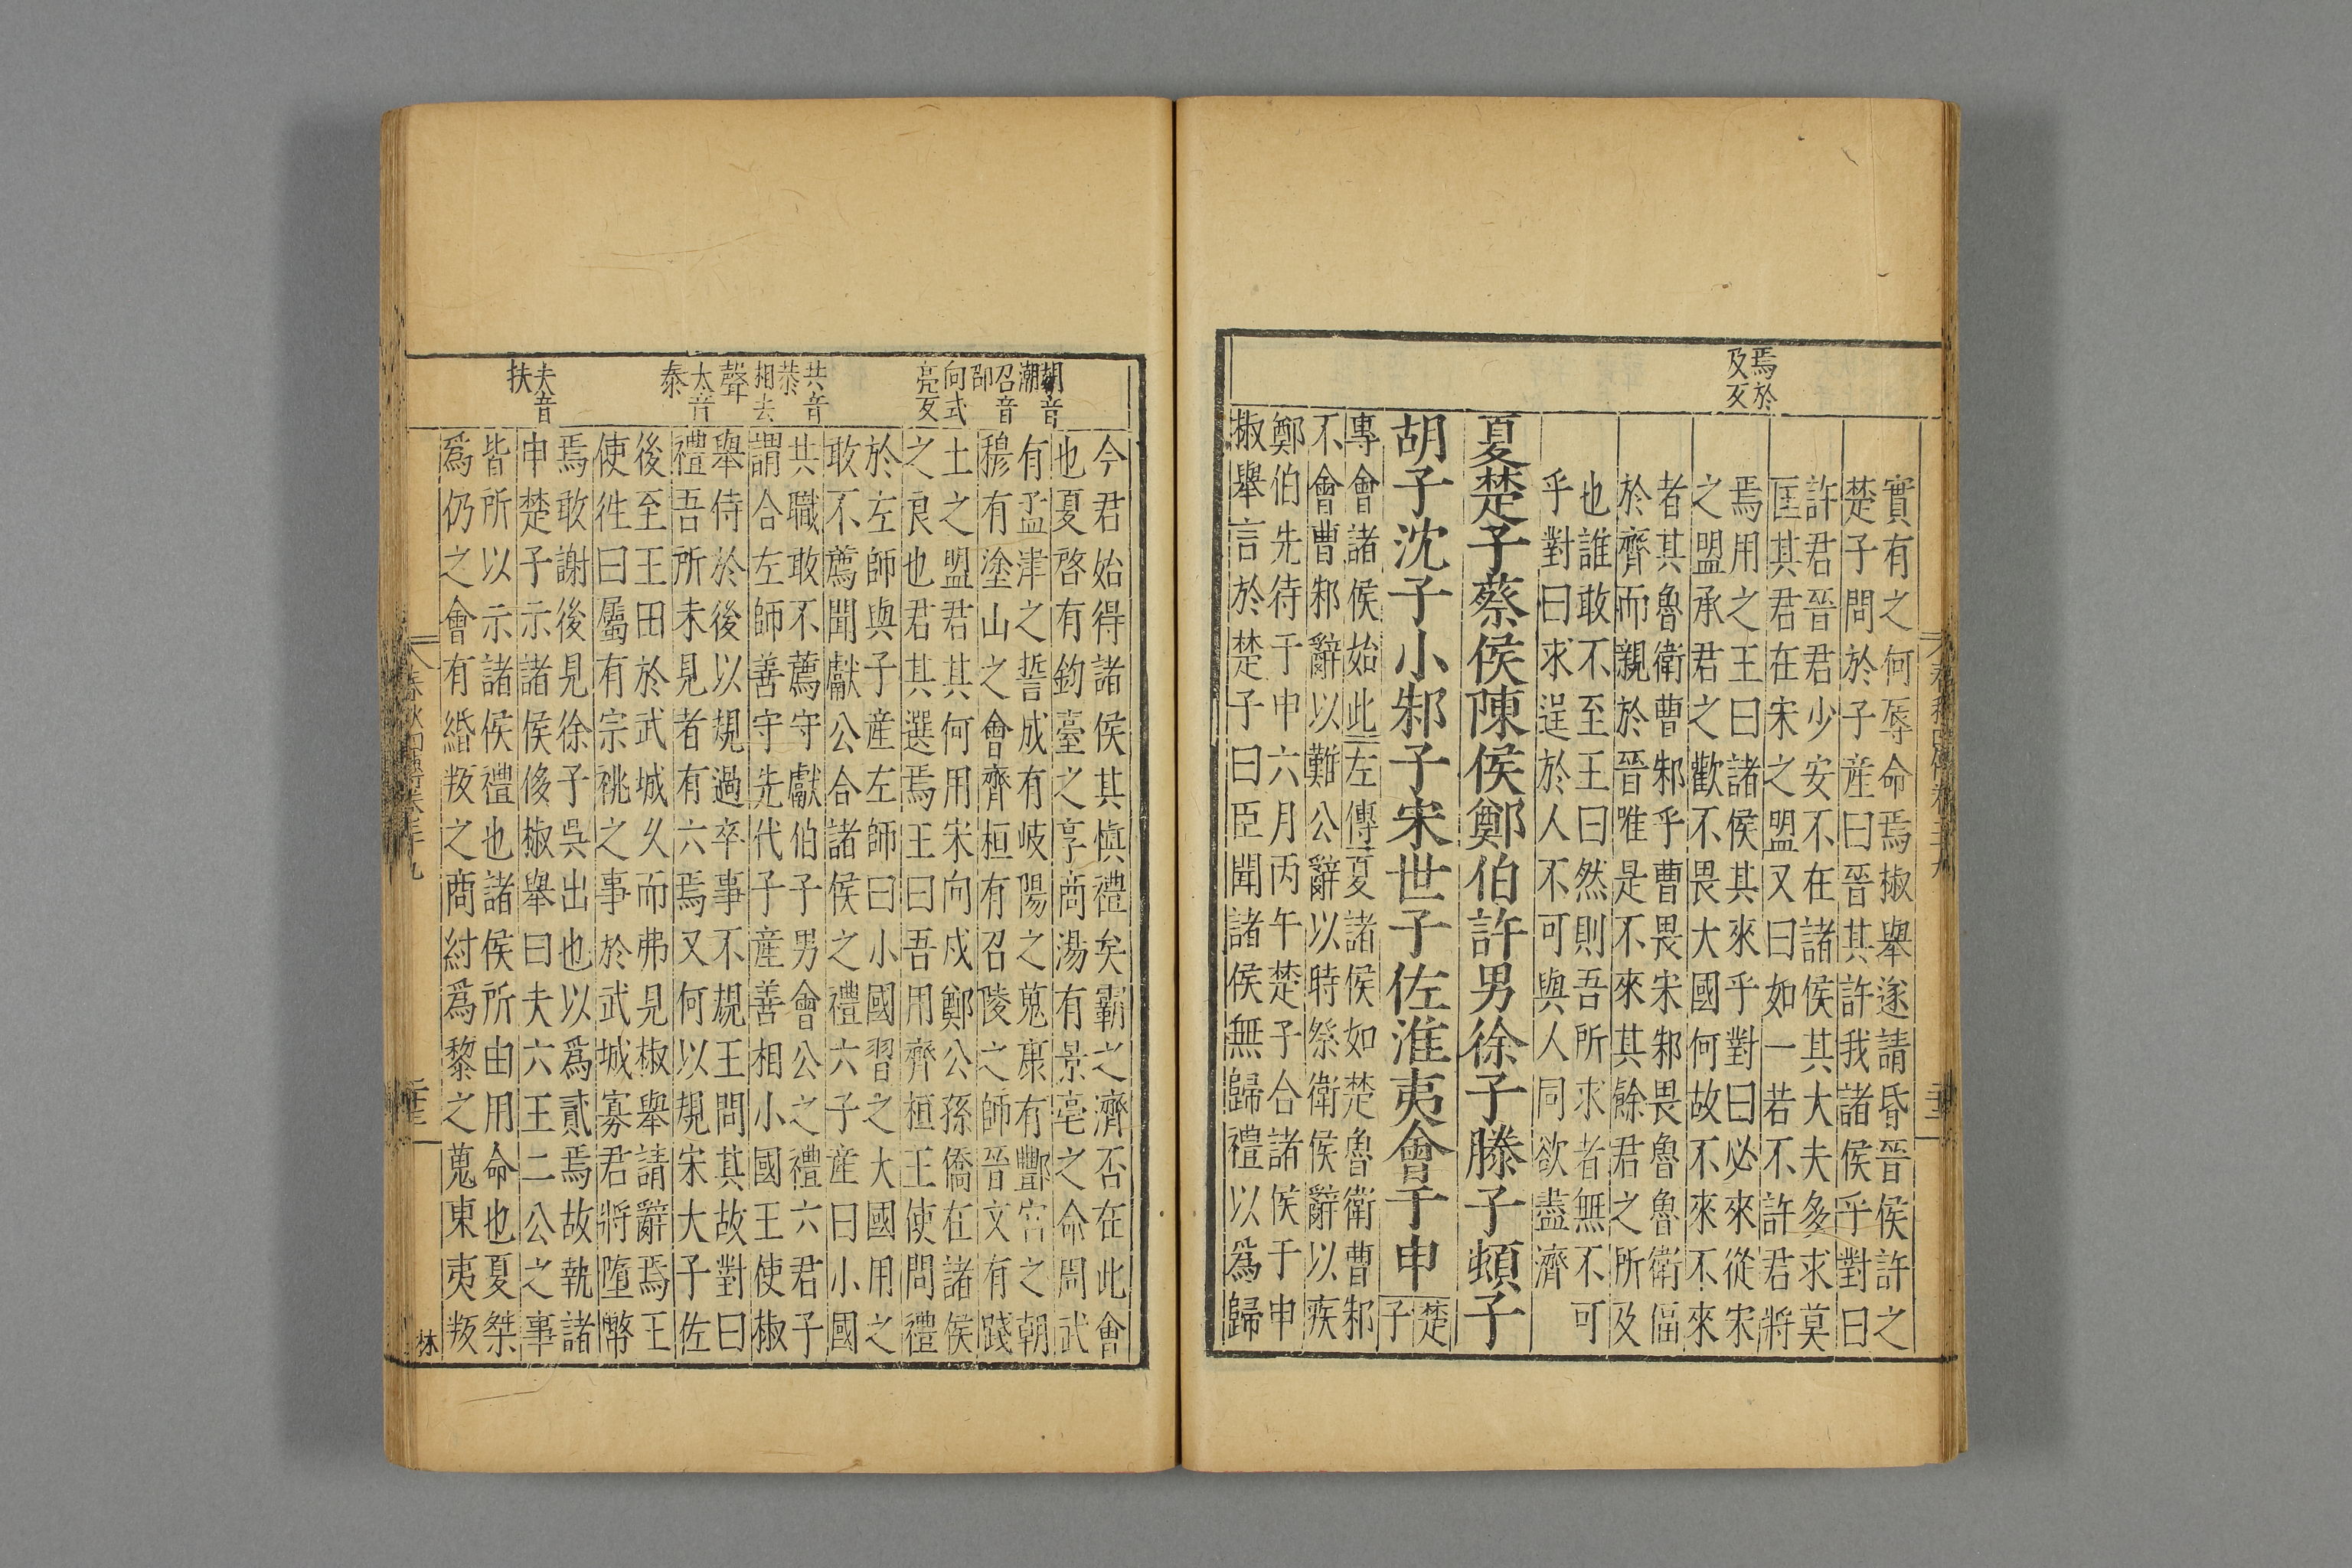 焉於
及反
實有之何辱命焉椒舉遂請昏晉侯許之
楚子問於子産曰晉其許我諸侯乎對曰
許君晉君少安不在諸侯其大夫多求莫
匡其君在宋之盟又曰如一若不許君將
焉用之王曰諸侯其來乎對曰必來從宋
之盟承君之歡不畏大國何故不來不來
者其魯衛曹邾乎曹畏宋邾畏魯魯衛偪
於齊而親於晉唯是不來其餘君之所及
也誰敢不至王曰然則吾所求者無不可
乎對曰求逞於人不可與人同欲盡濟
夏楚子蔡侯陳侯鄭伯許男徐子滕子頓子
胡子沈子小邾子宋世子佐淮夷會于申
楚
子
專會諸侯始此左傳夏諸侯如楚魯衛曹邾
不會曹邾辭以難公辭以時祭衛侯辭以疾
鄭伯先待于申六月丙午楚子合諸侯于申
椒舉言於楚子曰臣聞諸侯無歸禮以爲歸
朝音
潮
召音
邵
向式
亮反
共音
恭
相去
聲
大音
泰
夫音
扶
今君始得諸侯其愼禮矣霸之濟否在此會
也夏啓有鈞臺之享商湯有景亳之命周武
有孟津之誓成有岐陽之蒐康有酆宮之朝
穆有塗山之會齊桓有召陵之師晉文有踐
土之盟君其何用宋向戌鄭公孫僑在諸侯
之良也君其選焉王曰吾用齊桓王使問禮
於左師與子産左師曰小國習之大國用之
敢不薦聞獻公合諸侯之禮六子産曰小國
共職敢不薦守獻伯子男會公之禮六君子
謂合左師善守先代子産善相小國王使椒
舉侍於後以規過卒事不規王問其故對曰
禮吾所未見者有六焉又何以規宋大子佐
後至王田於武城乆而弗見椒舉請辭焉王
使徃曰屬有宗祧之事於武城寡君將墮幣
焉敢謝後見徐子吳出也以爲貳焉故執諸
申楚子示諸侯侈椒舉曰夫六王二公之事
皆所以示諸侯禮也諸侯所由用命也夏桀
爲仍之會有緡叛之商紂爲黎之蒐東夷叛
林